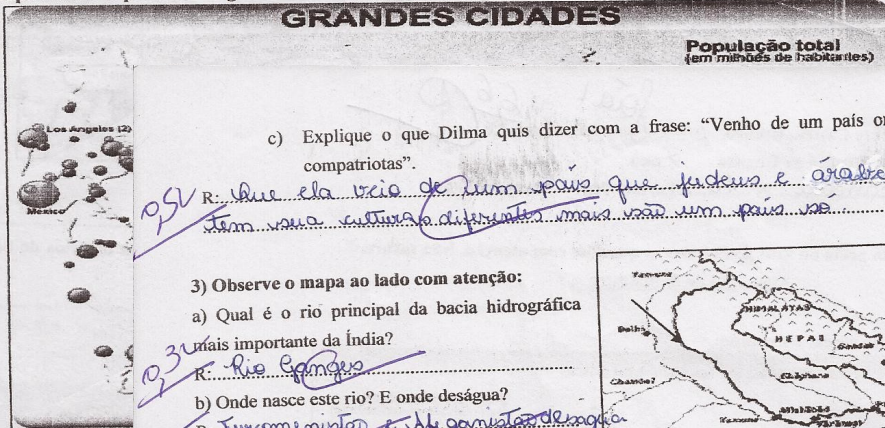 GRANDES CIDADES
População total
(em milhões de habitantes)
Los Angeles (2)
México
c) Explique o que Dilma quis dizer com a frase: “Venho de um país
compatriotas”.
0,5
R: Que ela veio de um país que judeus e árabe
tem sua culturas diferentes mais são um país só
3) Observe o mapa ao lado com atenção:
a) Qual é o rio principal da bacia hidrográfica
mais importante da Índia?
0,3
R: Rio Ganges
b) Onde nasce este rio? E onde deságua?
Yamuna
HIMALAYAS
Delhi
NEPAL
Gandak
Ghaghara
Chambal
Allahabad
Yamuna
Varanasi